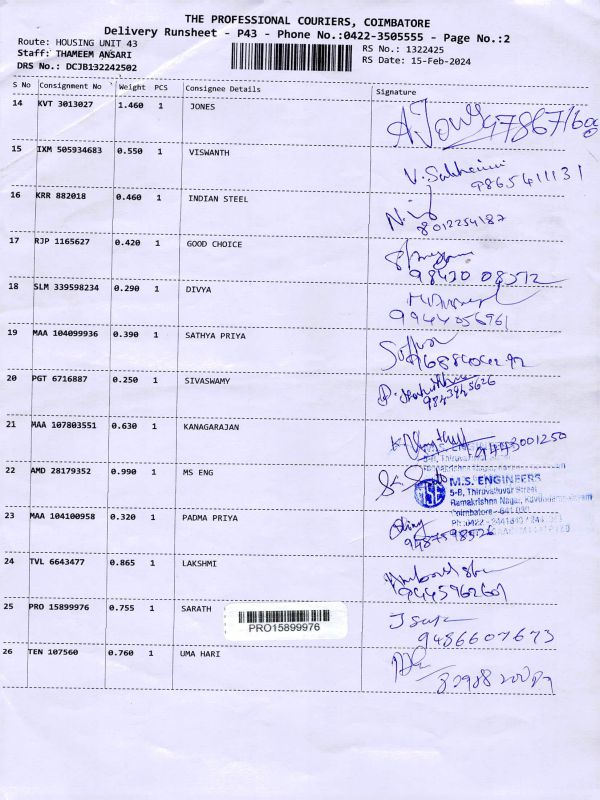 THE PROFESSIONAL COURIERS, COIMBATORE
Delivery Runsheet - P43 - Phone No.:0422-3505555 - Page No.:2
Route: HOUSING UNIT 43
Staff: THAMEEM ANSARI
DRS No.: DCJB132242502
RS No.: 1322425
RS Date: 15-Feb-2024
S No Consignment No Weight PCS Consignee Details Signature
14 KVT 3013027 1.460 1 JONES
15 IXM 505934683 0.550 1 VISWANTH
9865411131
16 KRR 882018 0.460 1 INDIAN STEEL
8012254187
17 RJP 1165627 0.420 1 GOOD CHOICE
98430 08512
18 SLM 339598234 0.290 1 DIVYA
9944056961
19 MAA 104099936 0.390 1 SATHYA PRIYA
20 PGT 6716887 0.250 1 SIVASWAMY
21 MAA 107803551 0.630 1 KANAGARAJAN
9443001250
22 AMD 28179352 0.990 1 MS ENG
MSE M.S. ENGINEERS
5-B, Thiruvalluvar Street
Ramakrishna Nagar,
Coimbatore - 641
23 MAA 104100958 0.320 1 PADMA PRIYA
9487598526
24 TVL 6643477 0.865 1 LAKSHMI
9445962601
25 PRO 15899976 0.755 1 SARATH
PRO15899976
9486607673
26 TEN 107560 0.760 1 UMA HARI